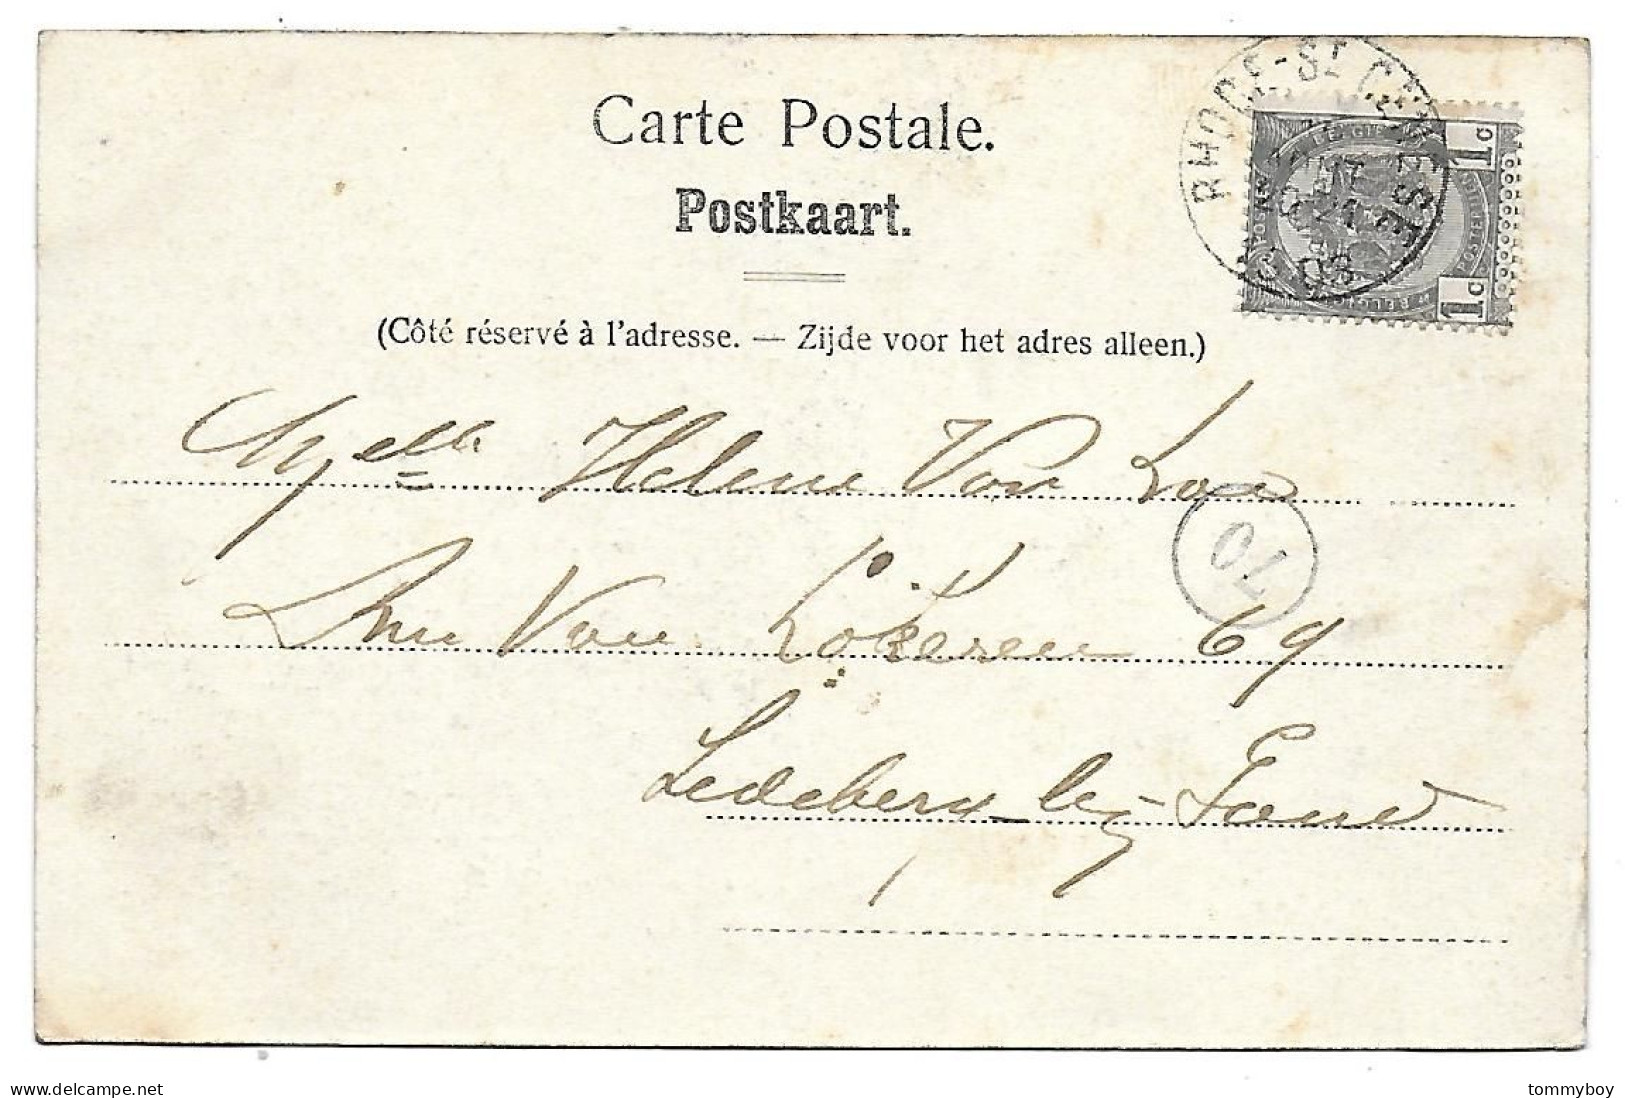 Carte Postale.
Postkaart.
(Côté réservé à l'adresse. — Zijde voor het adres alleen.)
RHODE-ST GENESE
03
1c
1c
Melle Helene Van Loo
Van Lokeren 69
Ledeberg lez Gand
70
delcampe.net
tommyboy